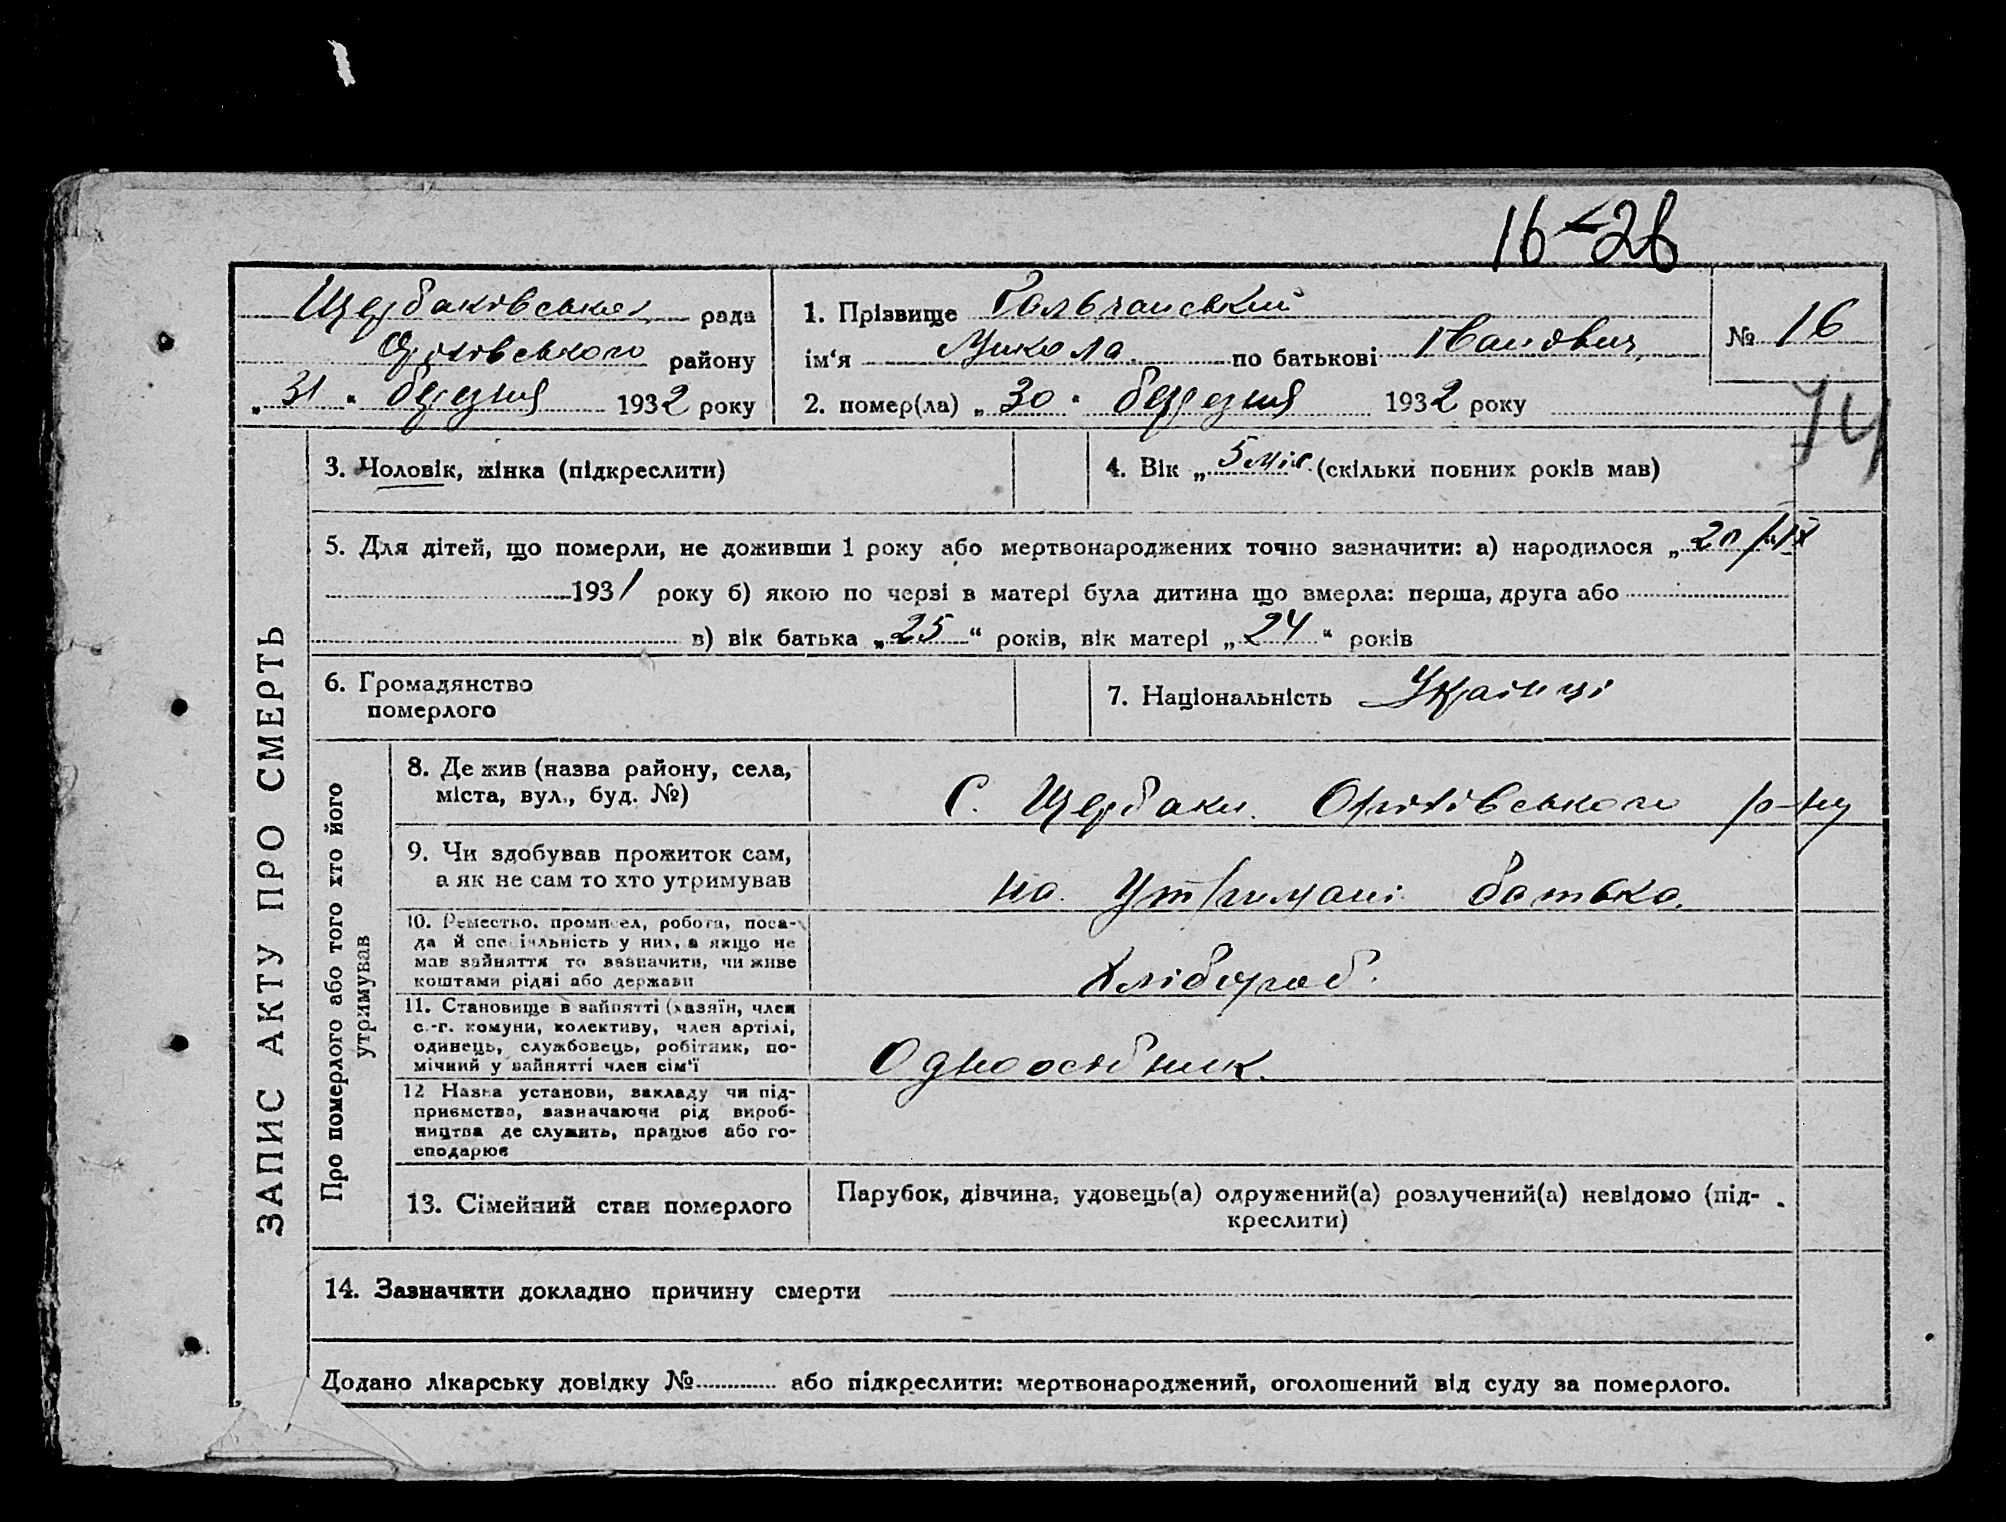 16-26
Щербаківська рада
Оріхівського району
„31“ березня 1932 року
1. Прізвище Гальчанський
ім‘я Микола по батькові Іванович
2. помер(ла) „30“ березня 1932 року
№ 16
74
ЗАПИС АКТУ ПРО СМЕРТЬ
3. Чоловік, жінка (підкреслити)
4. Вік „5 міс. (скільки повних років мав)
5. Для дітей, що померли, не доживши 1 року або мертвонароджених точно зазначити: а) народилося „20/IX
1931 року б) якою по черзі в матері була дитина що вмерла: перша, друга або
в) вік батька „25“ років, вік матері „24“ років
6. Громадянство
померлого
7. Національність Україці
Про померлого або того хто його
утримував
8. Де жив (назва району, села,
міста, вул., буд. №)
С. Щербаки. Оріхівського р-ну
9. Чи здобував прожиток сам,
а як не сам то хто утримував
на утримані батька.
10. Ремество, промисел, робота, поса-
да й спеціяльність у них, а якщо не
мав зайняття то зазначити, чи живе
коштами рідні або держави
Хлібороб.
11. Становище в зайнятті (хазяїн, член
с.-г. комуни, колективу, член артілі,
одинець, службовець, робітник, по-
мічний у зайнятті член сім‘ї
Одноосібник.
12 Назва установи, закладу чи під-
приємства, зазначаючи рід вироб-
ництва де служить, працює або го-
сподарює
13. Сімейний стан померлого
Парубок, дівчина, удовець(а) одружений(а) розлучений(а) невідомо (під-
креслити)
14. Зазначити докладно причину смерти
Додано лікарську довідку № або підкреслити: мертвонароджений, оголошений від суду за померлого.